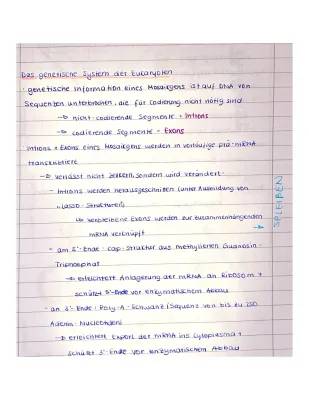 Das genetische System der Eukaryoten
· genetische Information eines Mosaikgens ist auf DNA von
Sequenten unterbrochen, die für Codierung nicht nötig sind
→ nicht-codierende Segmente = Introns
→ codierende Segmente = Exons
Introns + Exons eines Mosaikgens werden in vorläufige prä-mRNA
transkribiert
→ verlässt nicht Zellkern, sondern wird verändert:
- Introns werden herausgeschnitten (unter Ausbildung von
"Lasso-Strukturen)
→ verbleibene Exons werden zur zusammenhängenden
mRNA verknüpft
SPLEIßEN
- am 5'-Ende: Cap-Struktur aus methylierten Guanosin-
Triphosphat
→ erleichtert Anlagerung der mRNA an Ribosom +
schützt 5'-Ende vor enzymatischem Abbau
- an 3'-Ende: Poly-A-Schwanz (Sequenz von bis zu 250
Adenin-Nucleotiden)
→ erleichtert Export der mRNA ins Cytoplasma +
schützt 3'-Ende vor enzymatischem Abbau